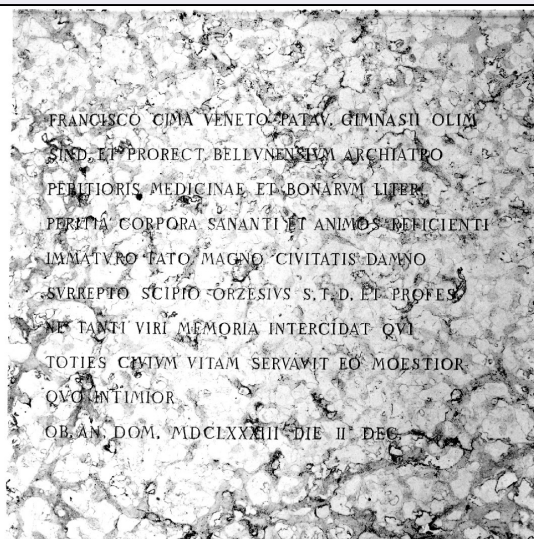 FRANCISCO CIMA VENETO PATAV. GIMNASII OLIM
SIND. ET PRORECT. BELLVNENSIVM ARCHIATRO
PERITIORIS MEDICINAE ET BONARVM LITER.
PERITIA CORPORA SANANTI ET ANIMOS REFICIENTI
IMMATVRO FATO MAGNO CIVITATIS DAMNO
SVRREPTO SCIPIO ORZESIVS S.T.D. ET PROFES.
NE TANTI VIRI MEMORIA INTERCIDAT QVI
TOTIES CIVIVM VITAM SERVAVIT EO MOESTIOR
QVO INTIMIOR
OB. AN. DOM. MDCLXXXIII DIE II DEC.